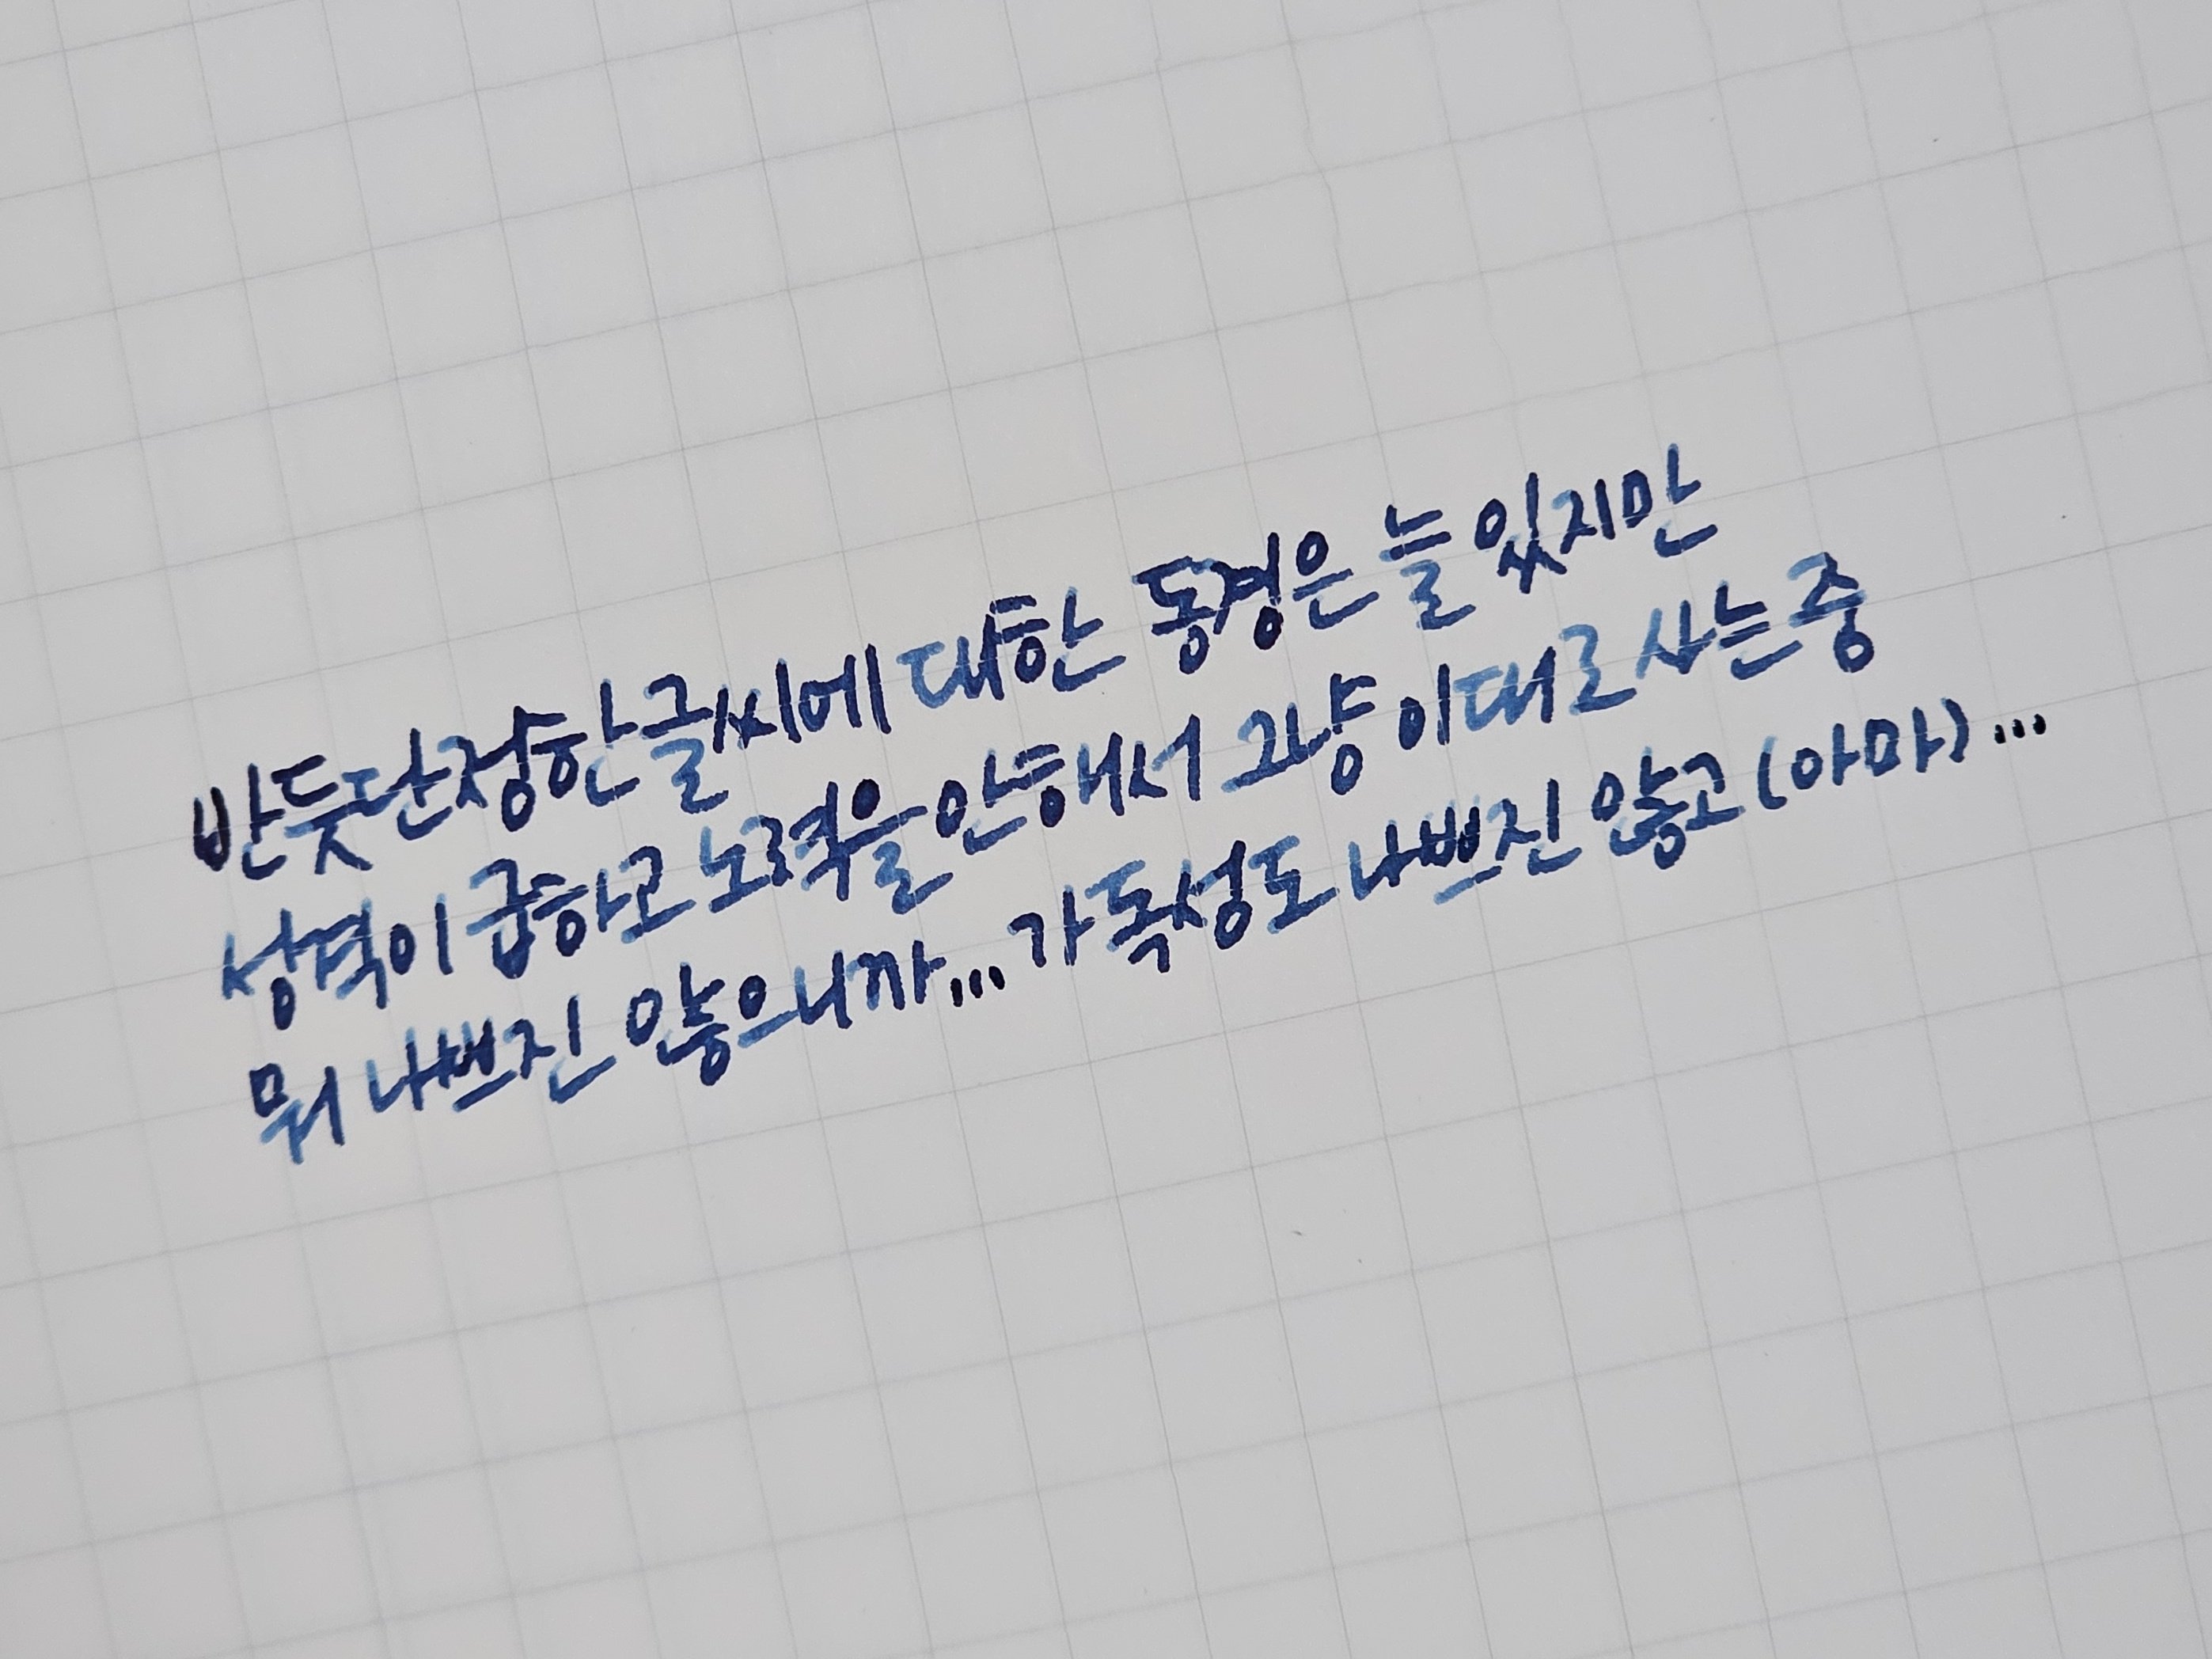 반듯단정한 글씨에 대한 동경은 늘 있지만
성격이 급하고 노력을 안해서 그냥 이대로 사는 중
뭐 나쁘진 않으니까... 가독성도 나쁘진 않고 (아마)...